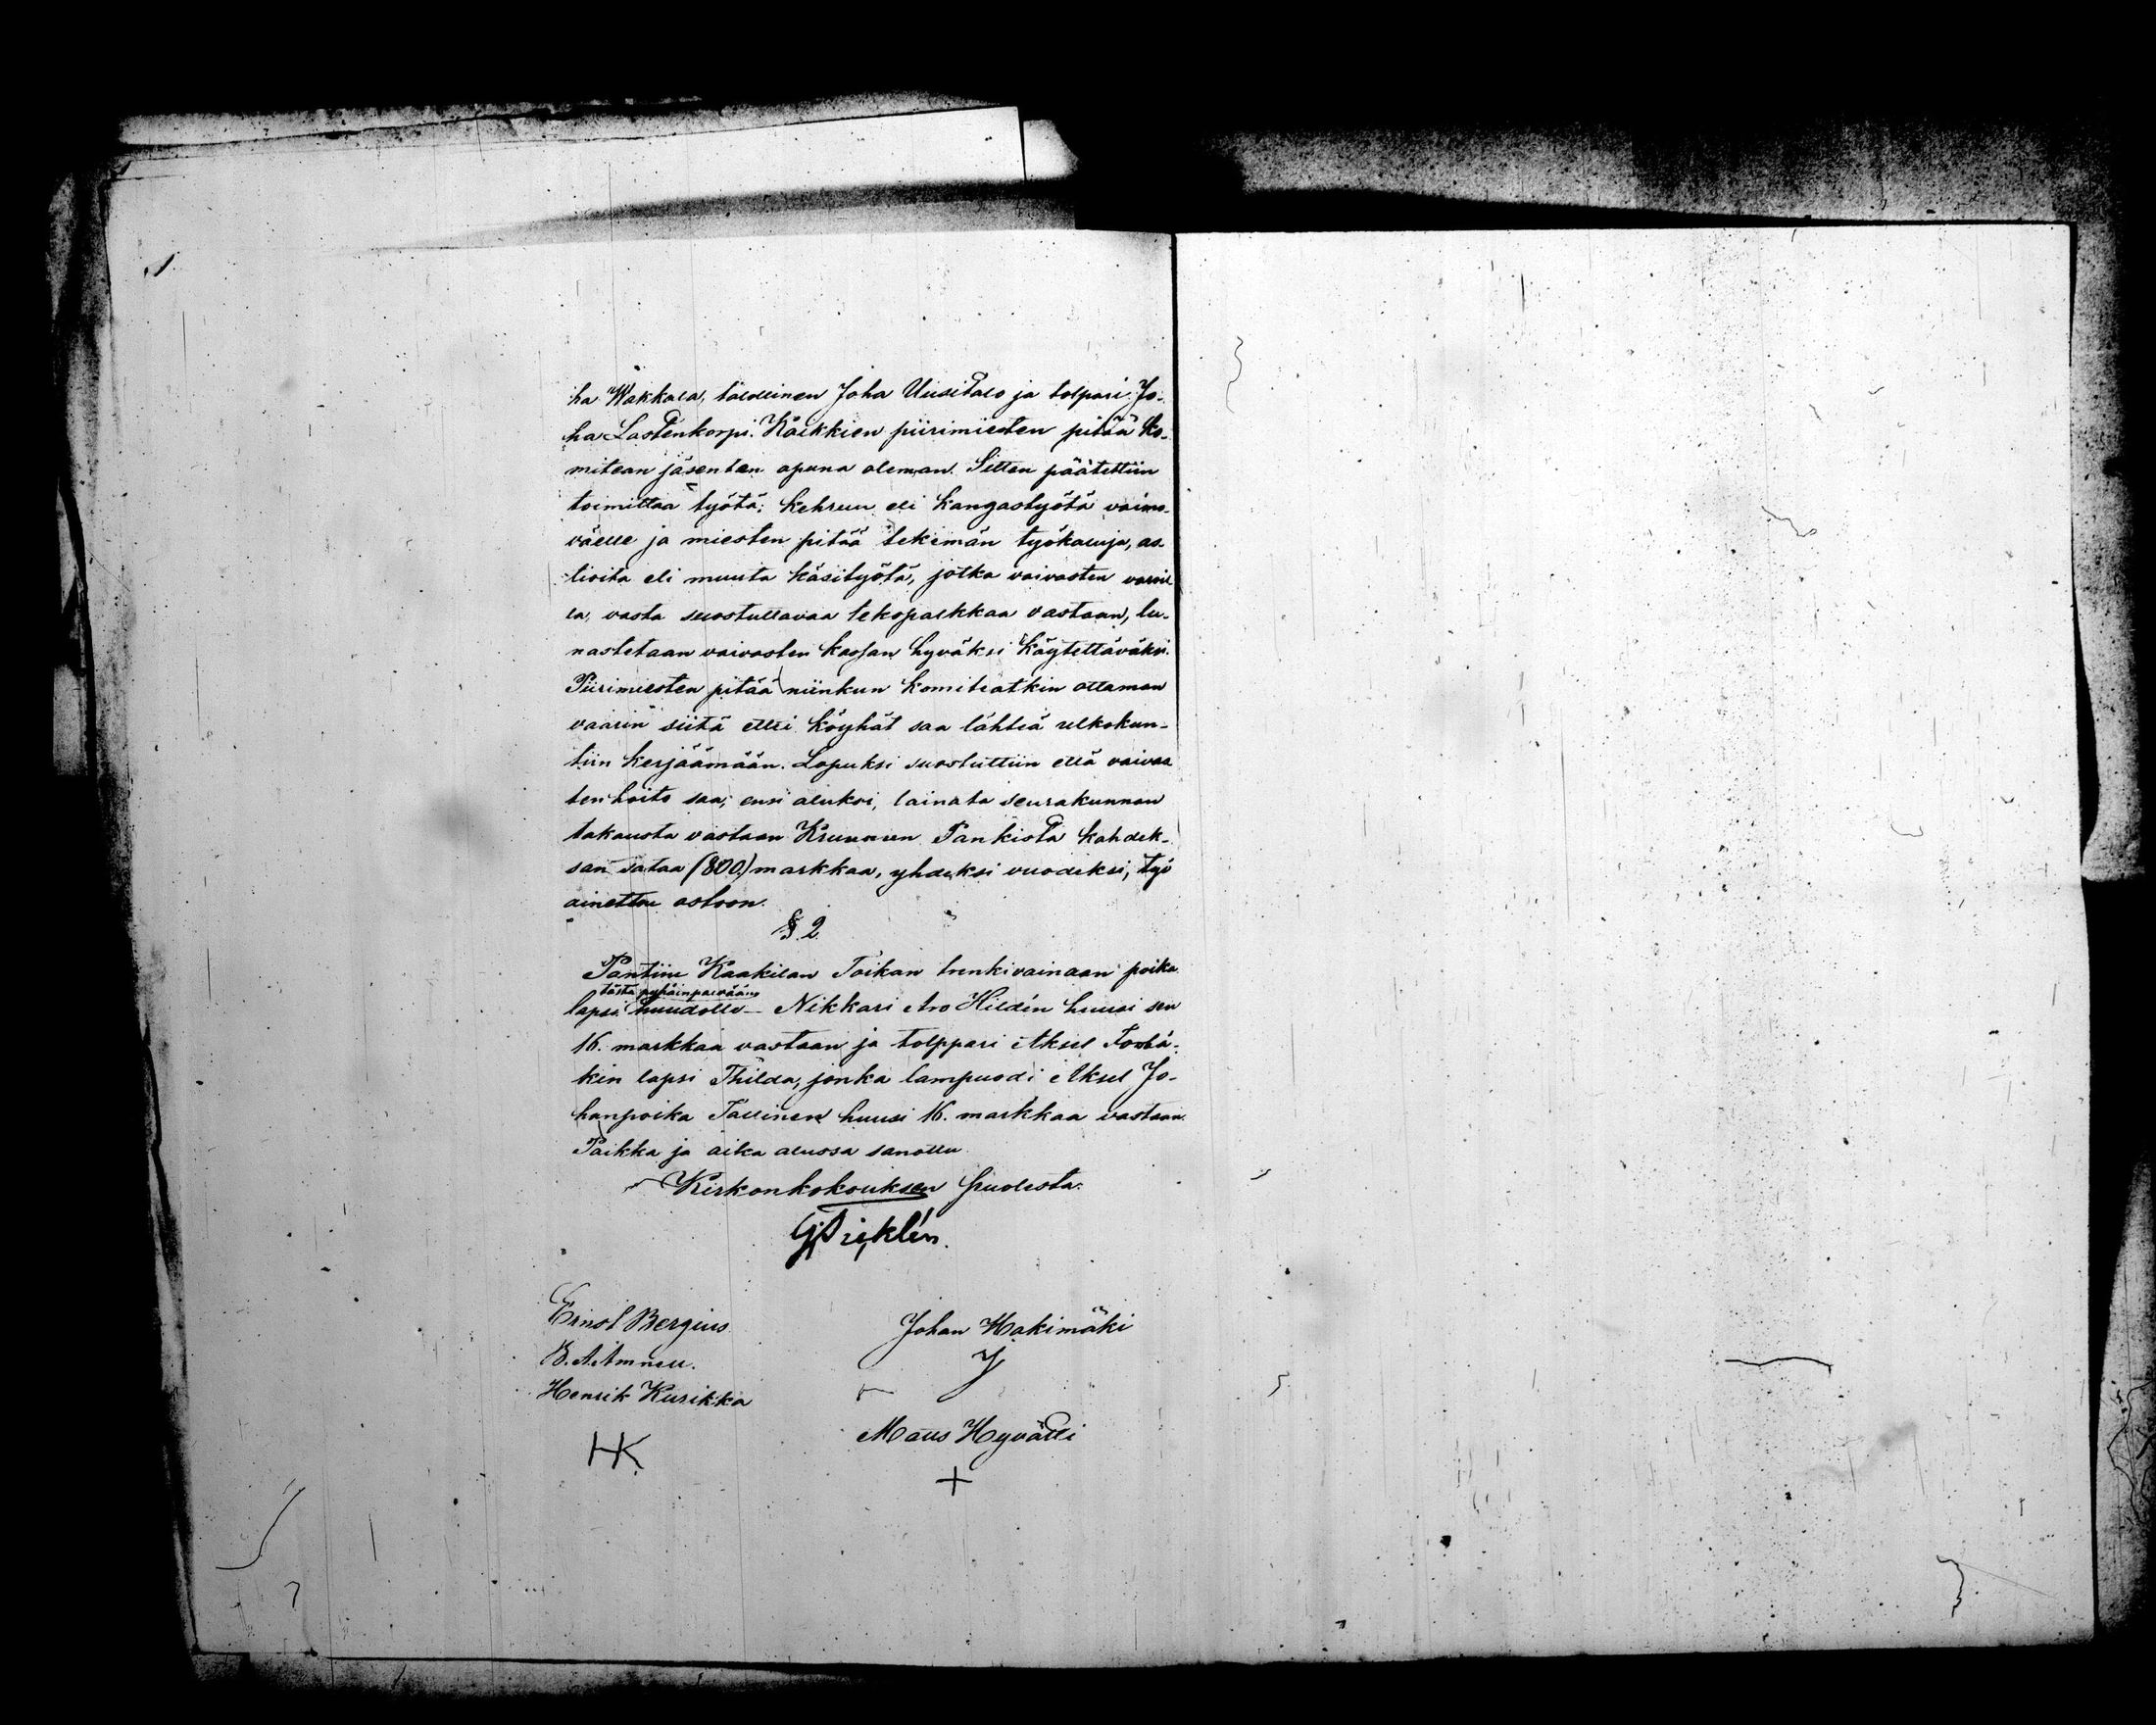 ha Wakkala, talollinen Joha Uusitalo ja tolpari Jo-
ha Lastenkorpi. Kaikkien piirimiesten pitää Ko-
mitean jäsenten apuna oleman. Sitten päätettiin
toimittaa työtä; kehruu eli kangastyötä vaimo-
väelle ja miesten pitää tekemän työkaluja, as-
tioita eli muuta käsityötä, jotka vaivasten varoil
la, vasta suostuttavaa tekopalkkaa vastaan, lu-
nastetaan vaivasten kassan hyväksi käytettäväksi.
Piirimiesten pitää niinkun komiteatkin ottaman
vaarin siitä ettei köyhät saa lähteä ulkokun-
tiin kerjäämään. Lopuksi suostuttiin että vaivas
ten hoito saa, ensi aluksi, lainata seurakunnan
takausta vastaan Kruunun Pankista kahdek-
san sataa (800) markkaa, yhdeksi vuodeksi, työ
ainetten ostoon.
§ 2.
Pantiin Kaakilan Toikan trenkivainaan poika
tästä pyhäinpäivään
lapsi huudolle – Nikkari Aro Hildén huusi sen
16. markkaa vastaan ja tolppari Aksel
kin lapsi Thilda, jonka lampuodi Aksel Jo-
hanpoika Tallinen huusi 16. markkaa vastaan.
Paikka ja aika alussa sanottu
Kirkonkokouksen puolesta:
Ernst Bergius
Henrik Kurikka
HK
Johan Hakimäki
Matts Hyvätti
+